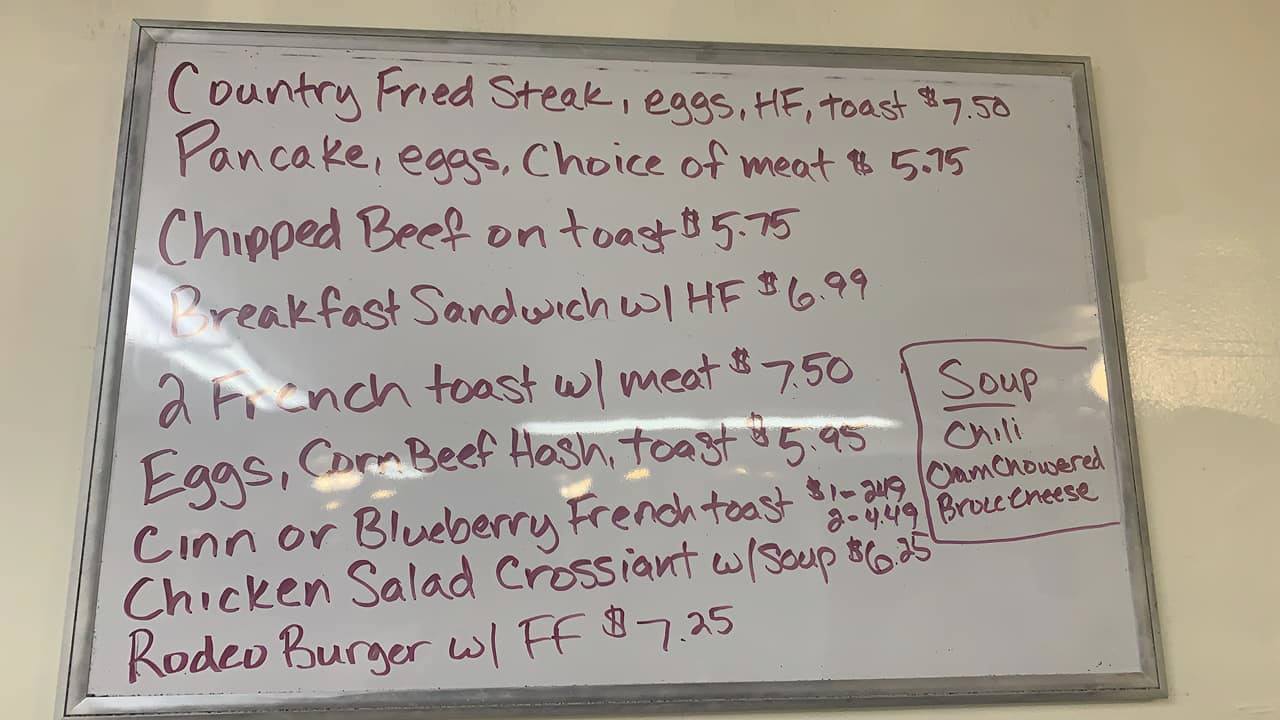 Country Fried Steak, eggs, HF, toast $7.50
Pancake, eggs, Choice of meat $5.75
Chipped Beef on toast $5.75
Breakfast Sandwich w/ HF $6.99
2 French toast w/ meat $7.50
Eggs, Corn Beef Hash, toast $5.95
Cinn or Blueberry French toast $1-249
2-4.49
Chicken Salad Crossiant w/Soup $6.25
Rodeo Burger w/ FF $7.25
Soup
Chili
Clam Chowered
Brocc Cheese